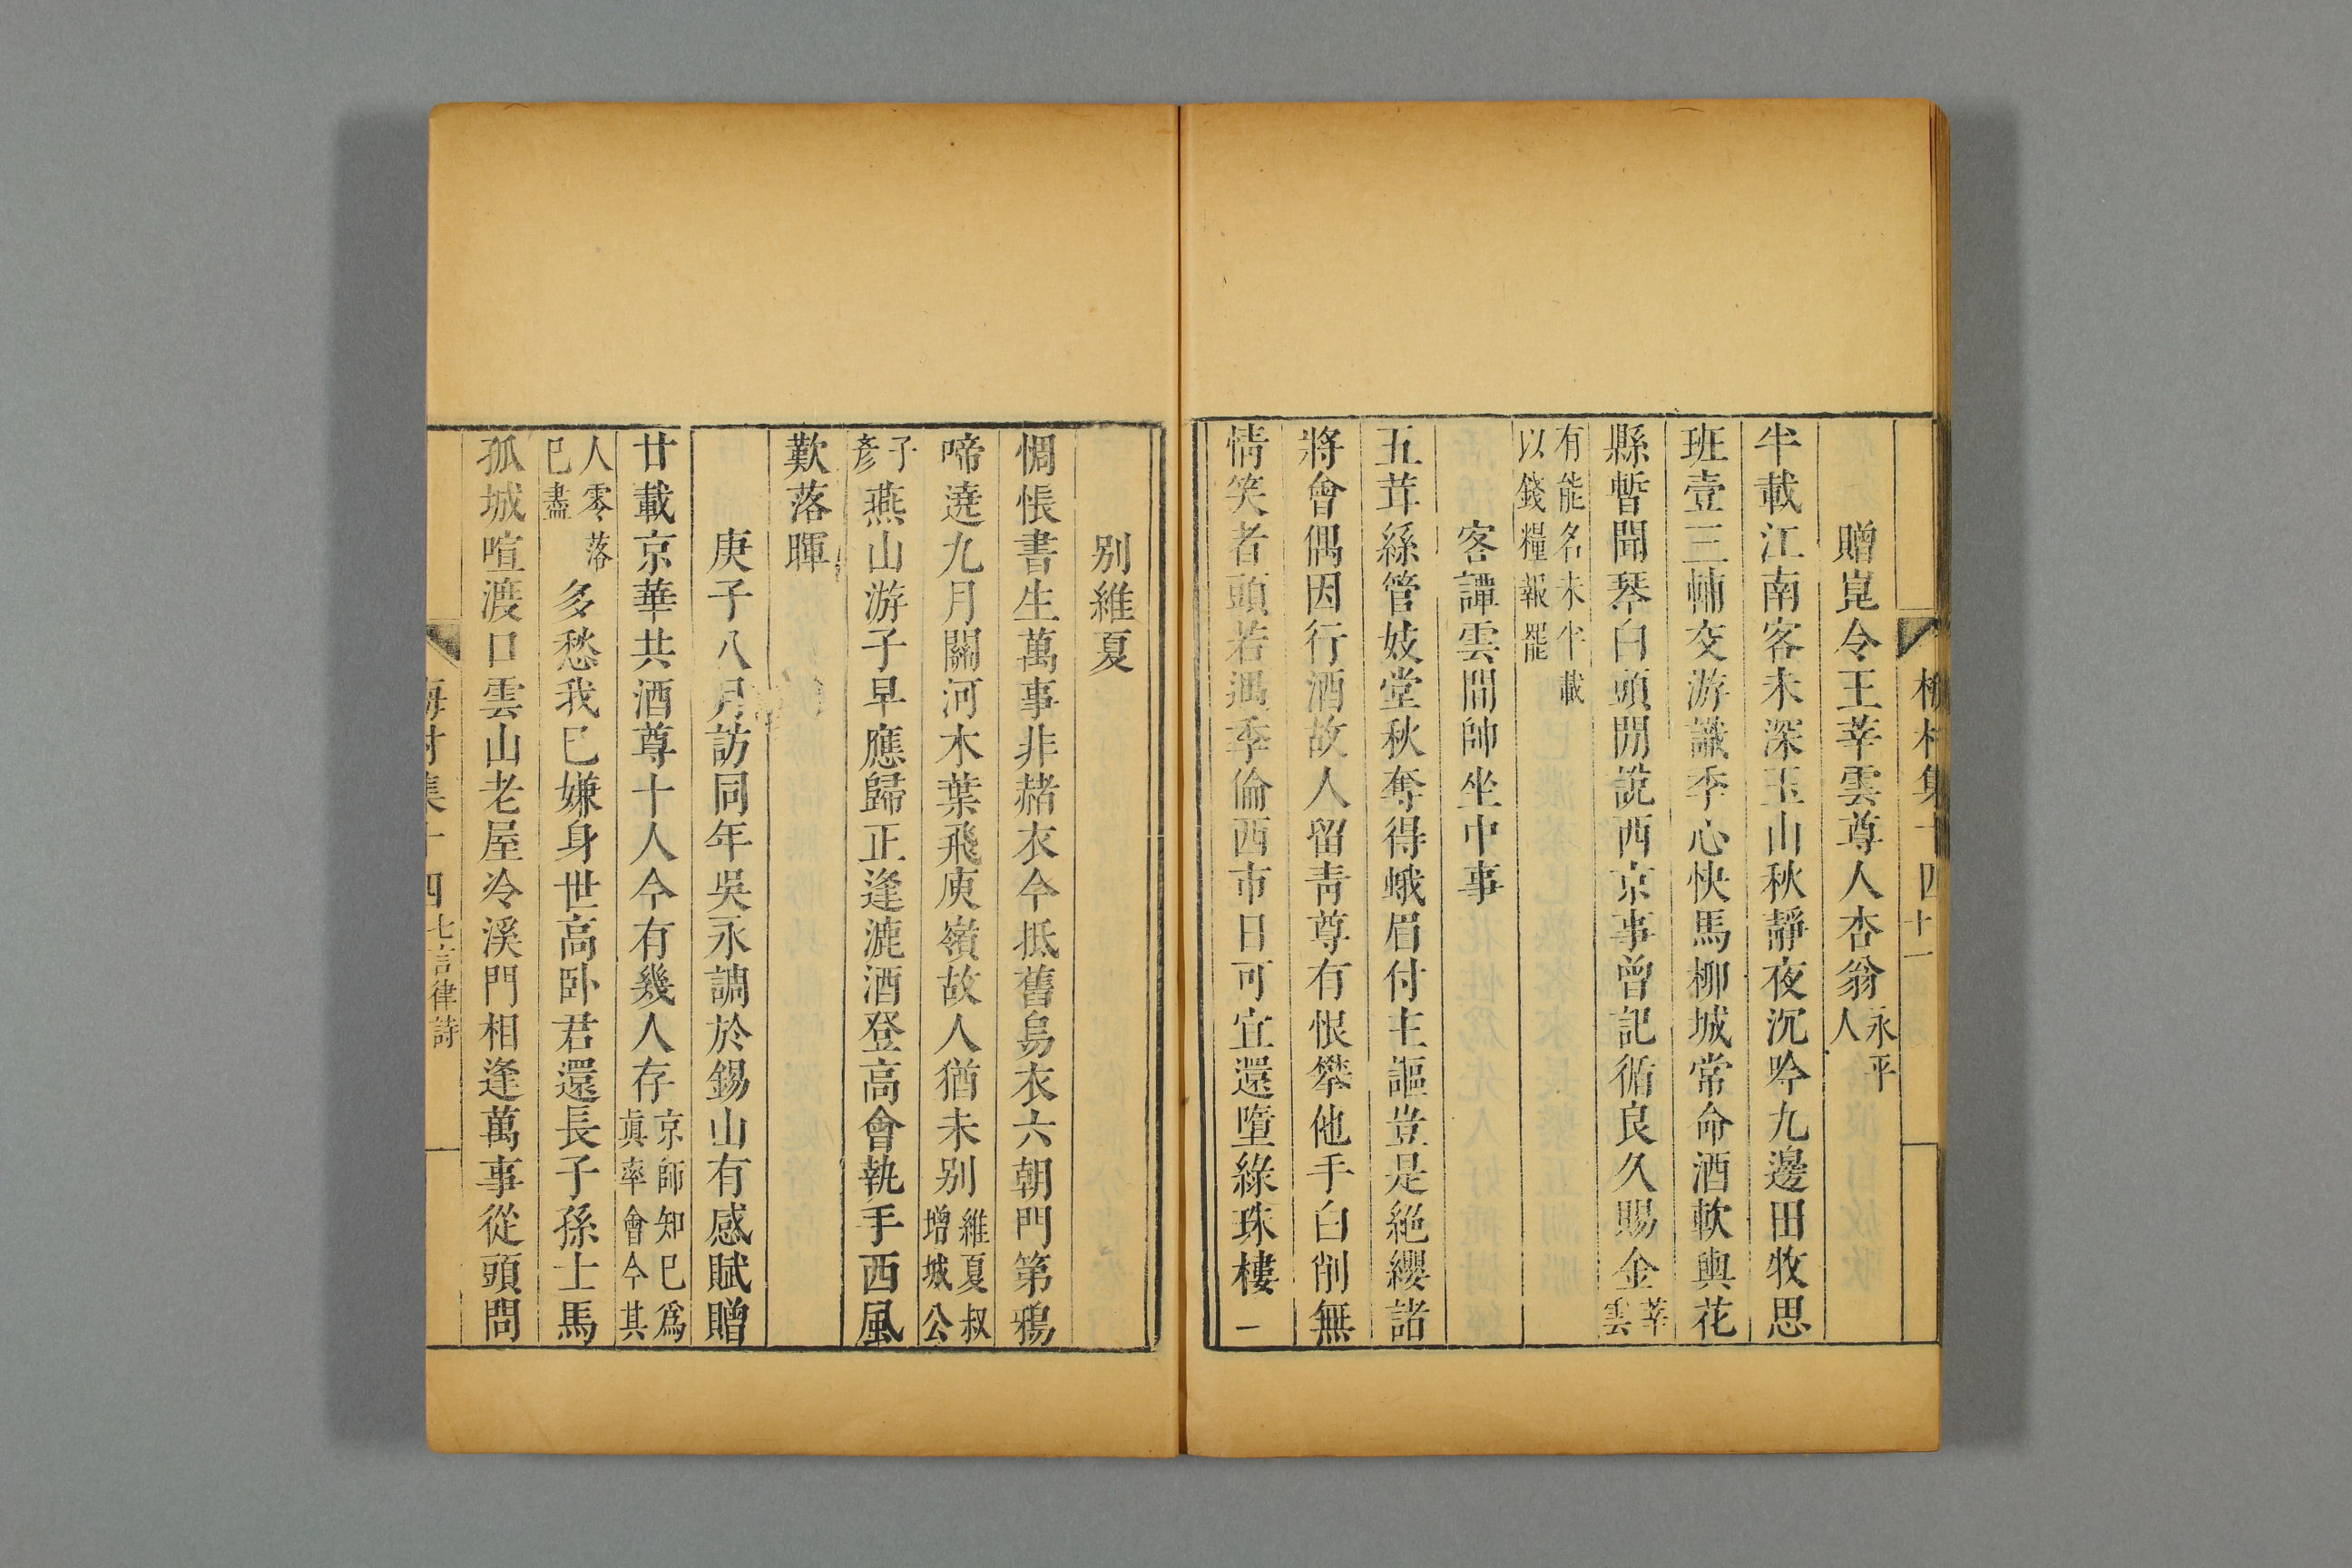 梅村集十四 十一
贈崑令王莘雲尊人杏翁永平人
半載江南客未深玉山秋靜夜沉吟九邊田牧思
班壹三輔交游識季心快馬柳城常命酒軟輿花
縣暫聞琴白頭閒說西京事曾記循良久賜金莘雲
有能名未半載以錢糧報罷
客譚雲間帥坐中事
五茸絲管妓堂秋奪得蛾眉付主謳豈是絕纓諸
將會偶因行酒故人留青尊有恨攀他手白削無
情笑者頭若遇季倫西市日可宜還墮綠珠樓 一
别維夏
惆悵書生萬事非赭衣今抵舊烏衣六朝門第鴉
啼遶九月關河木葉飛庾嶺故人猶未别維夏叔增城公
子彥燕山游子早應歸正逢漉酒登高會執手西風
歎落暉
庚子八月訪同年吳永調於錫山有感賦贈
廿載京華共酒尊十人今有幾人存京師知巳爲眞率會今其
人零落巳盡多愁我巳嫌身世高卧君還長子孫士馬
孤城喧渡口雲山老屋冷溪門相逢萬事從頭問
梅村集十四 七言律詩